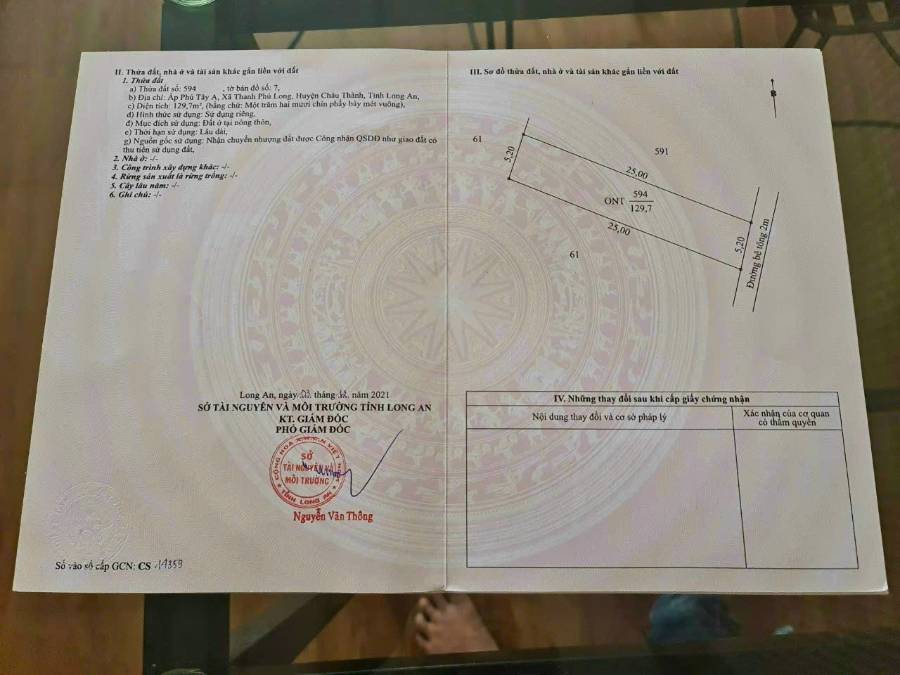 II. Thửa đất, nhà ở và tài sản khác gắn liền với đất
1. Thửa đất
a) Thửa đất số: 594 , tờ bản đồ số: 7,
b) Địa chỉ: Ấp Phú Tây A, Xã Thanh Phú Long, Huyện Châu Thành, Tỉnh Long An,
c) Diện tích: 129,7m², (bằng chữ: Một trăm hai mươi chín phẩy bảy mét vuông),
d) Hình thức sử dụng: Sử dụng riêng,
đ) Mục đích sử dụng: Đất ở tại nông thôn,
e) Thời hạn sử dụng: Lâu dài,
g) Nguồn gốc sử dụng: Nhận chuyển nhượng đất được Công nhận QSDĐ như giao đất có
thu tiền sử dụng đất,
2. Nhà ở: -/-
3. Công trình xây dựng khác: -/-
4. Rừng sản xuất là rừng trồng: -/-
5. Cây lâu năm: -/-
6. Ghi chú: -/-
Long An, ngày tháng năm 2021
SỞ TÀI NGUYÊN VÀ MÔI TRƯỜNG TỈNH LONG AN
KT. GIÁM ĐỐC
PHÓ GIÁM ĐỐC
SỞ
TÀI NGUYÊN VÀ
MÔI TRƯỜNG
TỈNH LONG AN
Nguyễn Văn Thông
Số vào sổ cấp GCN: CS 14359
III. Sơ đồ thửa đất, nhà ở và tài sản khác gắn liền với đất
B
61
591
5,20
25,00
ONT 594
129,7
25,00
5,20
61
Đường bê tông 2m
IV. Những thay đổi sau khi cấp giấy chứng nhận
Nội dung thay đổi và cơ sở pháp lý
Xác nhận của cơ quan
có thẩm quyền